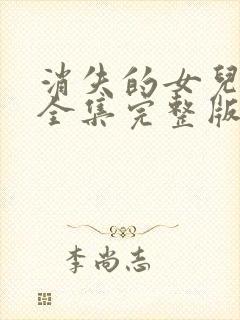 消失的女兒
全集完整版
李尚志